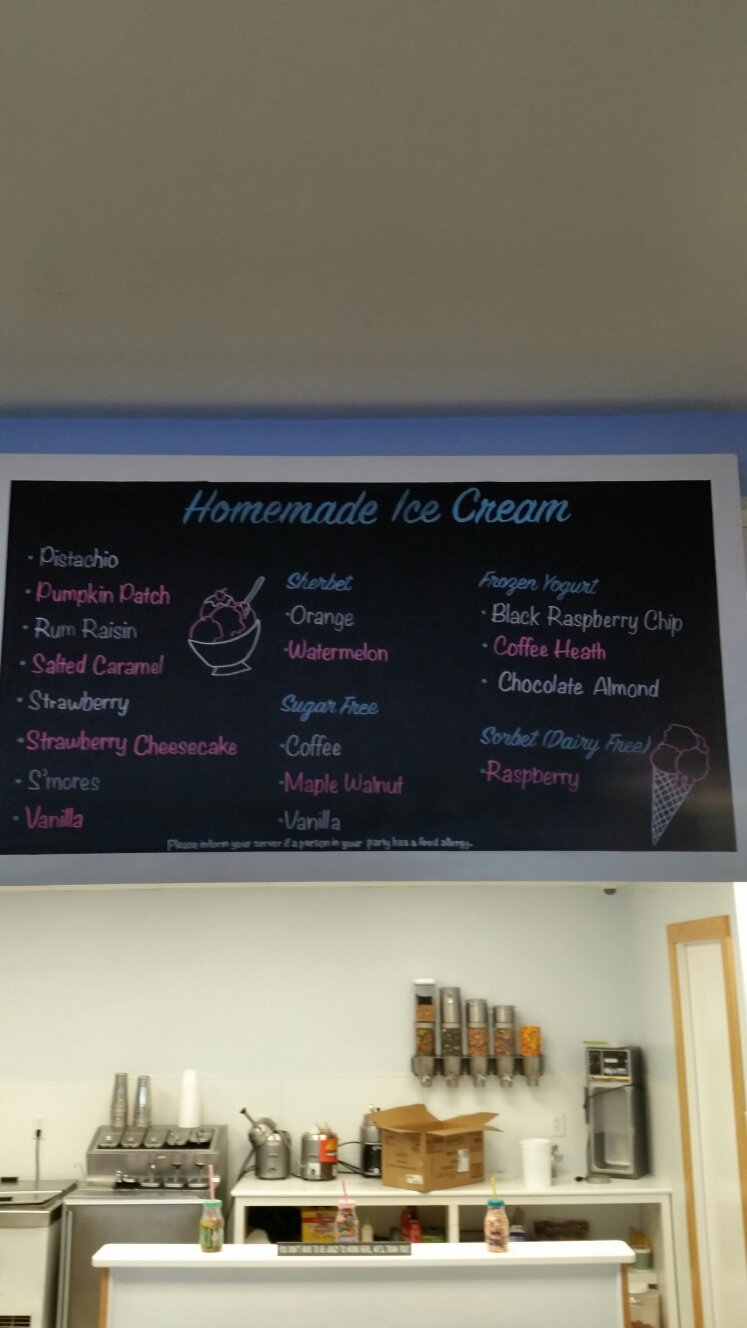 Homemade Ice Cream
· Pistachio
· Pumpkin Patch
· Rum Raisin
· Salted Caramel
· Strawberry
· Strawberry Cheesecake
· S'mores
· Vanilla
Sherbet
· Orange
· Watermelon
Sugar Free
· Coffee
· Maple Walnut
· Vanilla
Frozen Yogurt
· Black Raspberry Chip
· Coffee Heath
· Chocolate Almond
Sorbet (Dairy Free)
· Raspberry
Please inform your server if a person in your party has a food allergy.
YOU DON'T HAVE TO BE CRAZY TO WORK HERE, WE'LL TRAIN YOU!